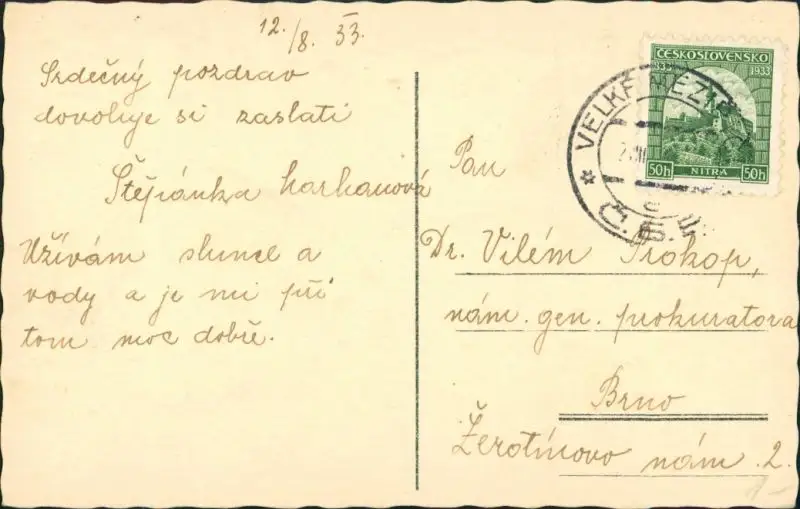 12./8. 33.
Srdečný pozdrav
dovoluje si zaslati
Štěpánka Karhanová
Užívám slunce a
vody a je mi při
tom moc dobře.
ČESKOSLOVENSKO
833 1933
50h NITRA 50h
* VELKÉ MEZI
Č.S.
Pan
Dr. Vilém Prokop,
nám. gen. prokuratora
Brno
Žerotínovo nám. 2.